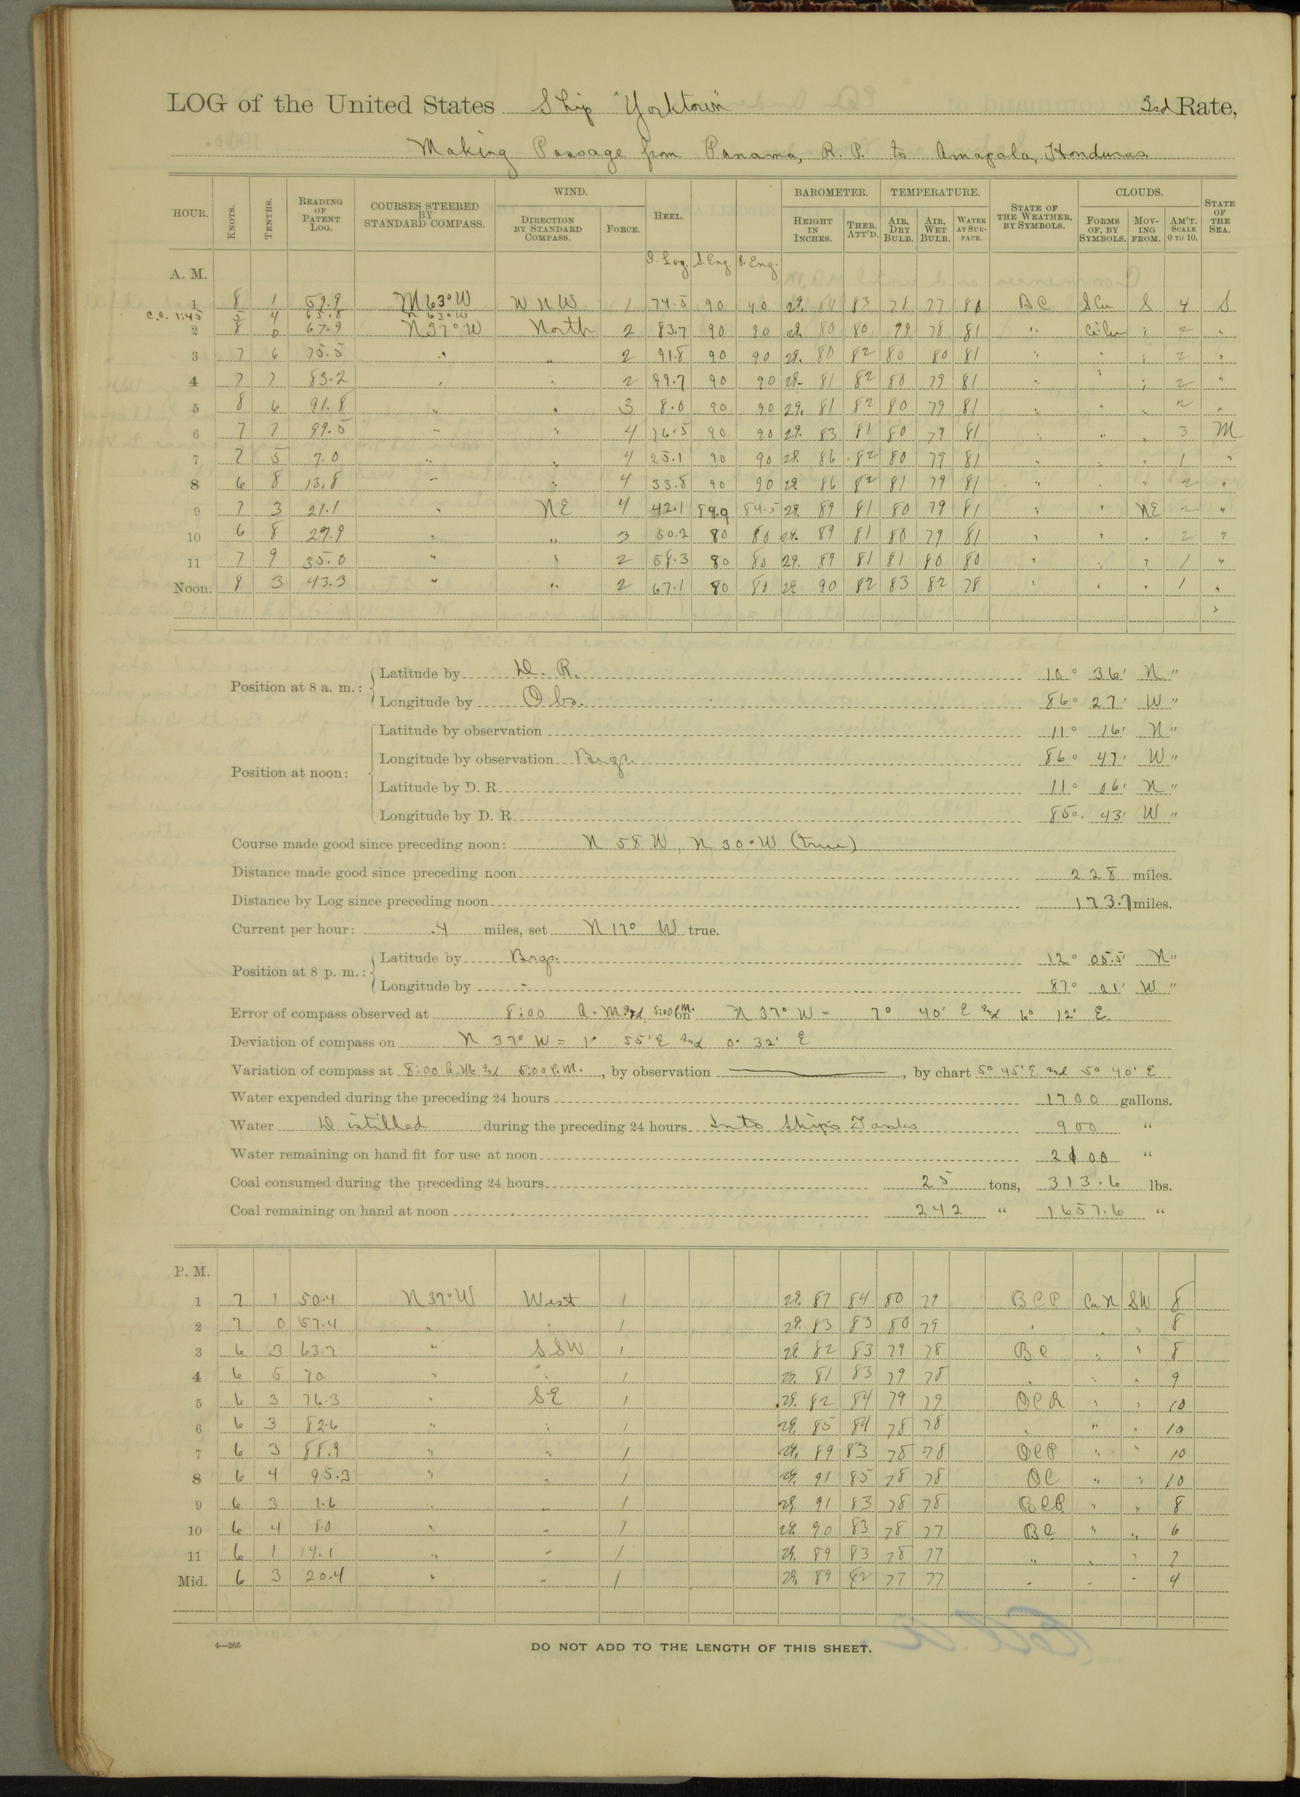 LOG of the United States Ship "Yorktown" 3rd Rate,
Making Passage from Panama, R. P. to Amapala, Honduras
HOUR. KNOTS. TENTHS. READING OF PATENT LOG. COURSES STEERED BY STANDARD COMPASS. WIND. DIRECTION BY STANDARD COMPASS. FORCE. HEEL. BAROMETER. HEIGHT IN INCHES. THER. ATT'D. TEMPERATURE. AIR, DRY BULB. AIR, WET BULB. WATER AT SURFACE. STATE OF THE WEATHER, BY SYMBOLS. CLOUDS. FORMS OF, BY SYMBOLS. MOVING FROM. AM'T. SCALE 0 TO 10. STATE OF THE SEA.
A. M. S. Log. S. Eng. P. Eng.
1 8 1 59.9 N 63° W W N W 1 74.5 90 90 29. 84 83 78 77 80 BC S Cu S 4 S
c.c. 1:45 5 4 65.8 N 63° W
2 8 0 67.9 N 37° W North 2 83.7 90 90 29. 80 80 79 78 81 " " 2 "
3 7 6 75.5 " " 2 91.8 90 90 29. 80 82 80 80 81 " " " 2 "
4 7 7 83.2 " " 2 99.7 90 90 29. 81 82 80 79 81 " " " 2 "
5 8 6 91.8 " " 3 8.0 90 90 29. 81 82 80 79 81 " " " 2 "
6 7 7 99.5 " " 4 16.5 90 90 29. 83 81 80 79 81 " " " 3 M
7 7 5 7.0 " " 4 25.1 90 90 29. 86 82 80 79 81 " " " 1 "
8 6 8 13.8 " " 4 33.8 90 90 29. 86 82 81 79 81 " " " 2 "
9 7 3 21.1 " NE 4 42.1 84.9 84.5 29. 89 81 80 79 81 " " NE 2 "
10 6 8 27.9 " " 3 50.2 80 80 29. 89 81 80 79 81 " " " 2 "
11 7 9 35.0 " " 2 58.3 80 80 29. 89 81 81 80 80 " " " 1 "
Noon. 8 3 43.3 " " 2 67.1 80 80 29. 90 82 83 82 78 " " " 1 "
Position at 8 a. m.: Latitude by D. R. 10° 36' N "
Longitude by Obs. 86° 27' W "
Position at noon: Latitude by observation 11° 16' N "
Longitude by observation Brgs. 86° 47' W "
Latitude by D. R. 11° 06' N "
Longitude by D. R. 85° 43' W "
Course made good since preceding noon: N 58 W, N 30° W (true)
Distance made good since preceding noon 228 miles.
Distance by Log since preceding noon 173.7 miles.
Current per hour: .4 miles, set N 17° W true.
Position at 8 p. m.: Latitude by Brgs. 12° 05.5' N "
Longitude by " 87° 21' W "
Error of compass observed at 8:00 A. M. and 5:00 P.M. on N 37° W = 7° 40' E and 6° 12' E
Deviation of compass on N 37° W = 1° 55' E and 0° 32' E
Variation of compass at 8:00 A.M. and 5:00 P.M., by observation, by chart 5° 45' E and 5° 40' E
Water expended during the preceding 24 hours 1700 gallons.
Water Distilled during the preceding 24 hours Into Ship's Tanks 900 "
Water remaining on hand fit for use at noon 2100 "
Coal consumed during the preceding 24 hours 25 tons, 313.6 lbs.
Coal remaining on hand at noon 242 " 1657.6 "
P. M.
1 7 1 50.4 N 37° W West 1 29. 87 84 80 79 BCP Cu N SW 8
2 7 0 57.4 " " 1 29. 83 83 80 79 " " " 8
3 6 3 63.7 " S S W 1 29. 82 83 79 78 BC " " 8
4 6 5 70. " " 1 29. 81 83 79 78 " " " 9
5 6 3 76.3 " SE 1 29. 82 84 79 79 OCR " " 10
6 6 3 82.6 " " 1 29. 85 84 78 78 " " " 10
7 6 3 88.9 " " 1 29. 89 83 78 78 OCP " " 10
8 6 4 95.3 " " 1 29. 91 85 78 78 OC " " 10
9 6 3 1.6 " " 1 29. 91 83 78 78 BCP " " 8
10 6 4 8.0 " " 1 29. 90 83 78 77 BC " " 6
11 6 1 14.1 " " 1 29. 89 83 78 77 " " " 7
Mid. 6 3 20.4 " " 1 29. 89 82 77 77 " " " 4
4—265
DO NOT ADD TO THE LENGTH OF THIS SHEET.